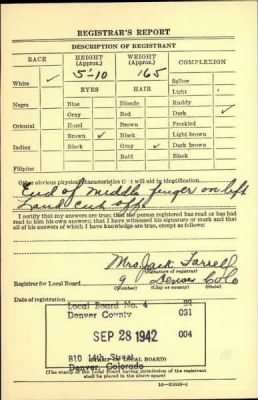 REGISTRAR'S REPORT
DESCRIPTION OF REGISTRANT
RACE HEIGHT (Approx.) WEIGHT (Approx.) COMPLEXION
5'-10 165
White ✓ Sallow
EYES HAIR Light
Negro Blue Blonde Ruddy
Gray Red Dark ✓
Oriental Hazel Brown Freckled
Brown ✓ Black Light brown
Indian Black Gray ✓ Dark brown
Bald Black
Filipino
Other obvious physical characteristics that will aid in identification
End of middle finger on left
hand cut off
I certify that my answers are true; that the person registered has read or has had
read to him his own answers; that I have witnessed his signature or mark and that
all of his answers of which I have knowledge are true, except as follows:
Mrs. Jack Farrell
(Signature of registrar)
Registrar for Local Board 9 Denver Colo
(Number) (City or county) (State)
Date of registration
Local Board No. 4
Denver County 031
SEP 28 1942 004
810 14th Street
Denver, Colorado
(STAMP OF LOCAL BOARD)
(The stamp of the Local Board having jurisdiction of the registrant
shall be placed in the above space)